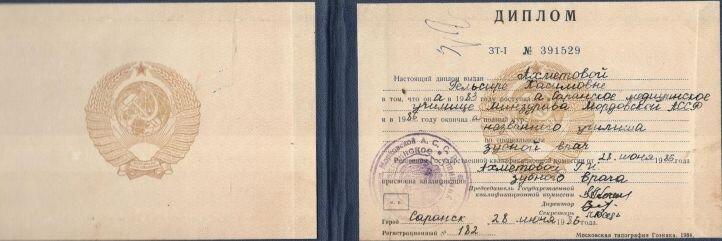 ДИПЛОМ
ЗТ-I № 391529
Настоящий диплом выдан Ахметовой
Гельсире Хасимовне
в том, что она в 1983 году поступила в Саранское медицинское
училище Минздрава Мордовской АССР
и в 1986 году окончила полный курс
названного училища
по специальности
зубной врач
Решением Государственной квалификационной комиссии от 28 июня 1986 года
Ахметовой Г.Х.
присвоена квалификация зубного врача
Председатель Государственной
квалификационной комиссии
Директор
Секретарь
М. П.
Город Саранск 28 июня 1986 г.
Регистрационный № 182
Московская типография Гознака. 1984.